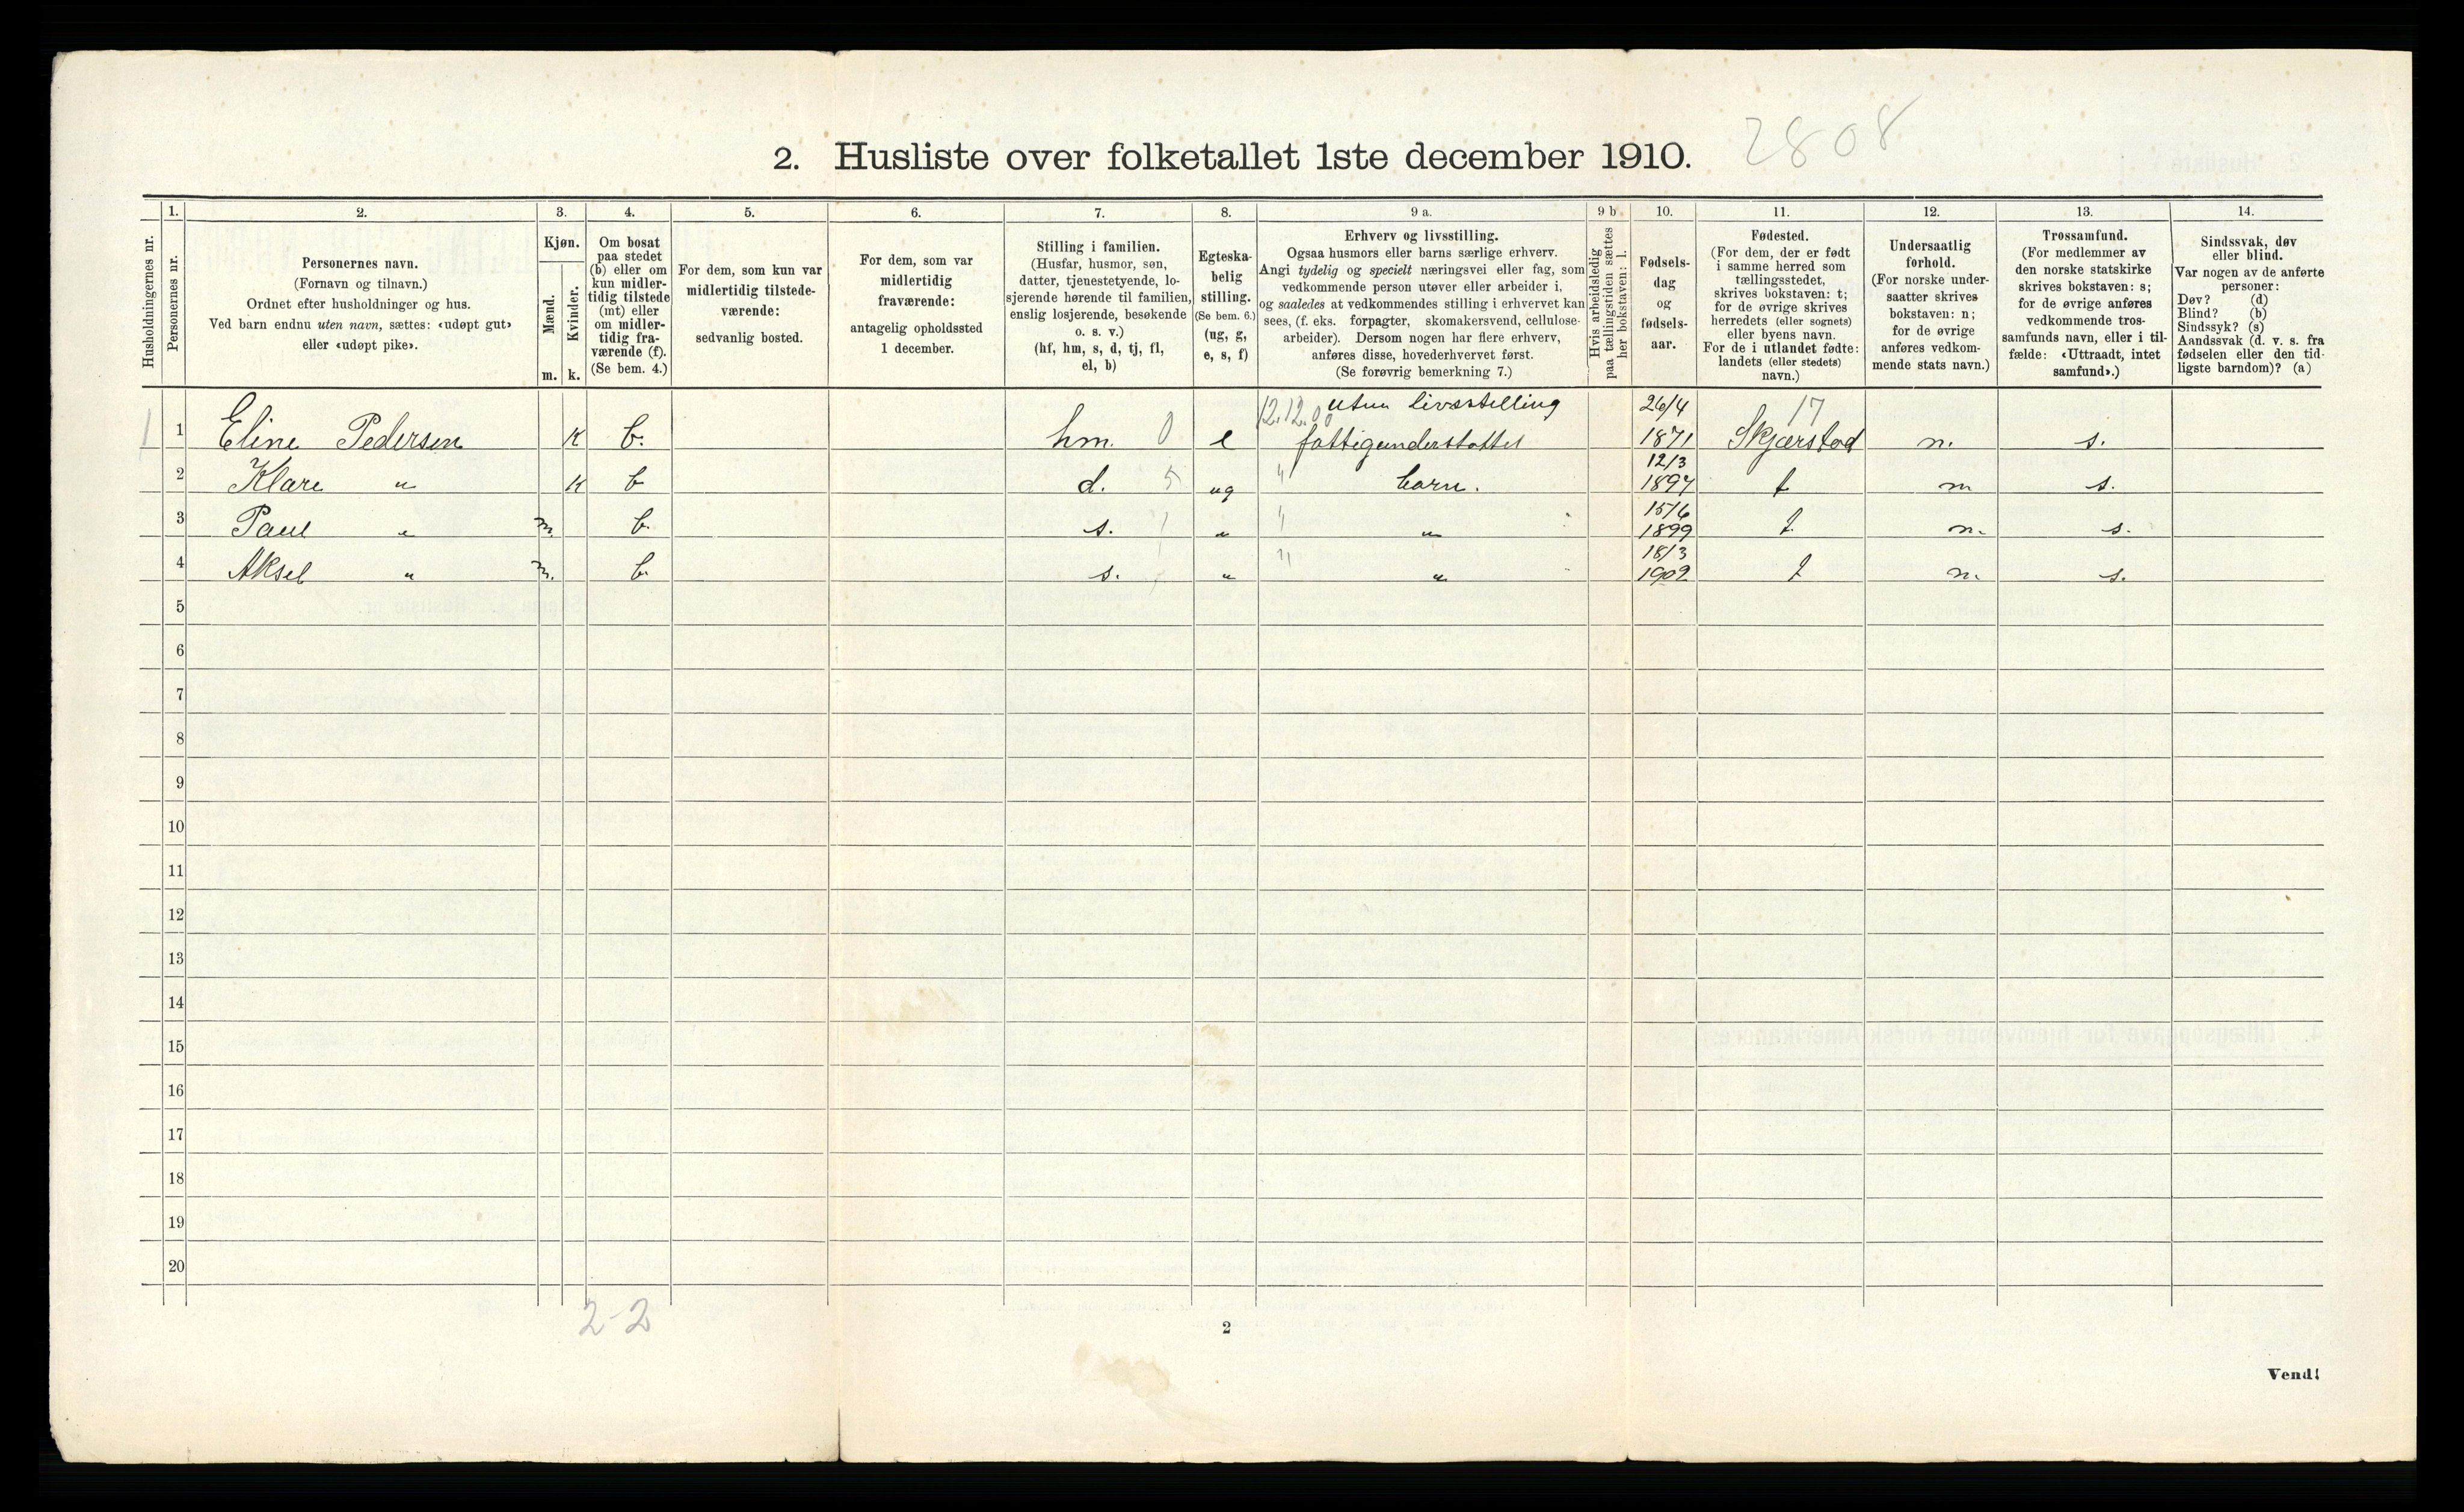 2. Husliste over folketallet 1ste december 1910. 2808
Husholdningernes nr.
1.
Personernes nr.
2.
Personernes navn.
(Fornavn og tilnavn.)
Ordnet efter husholdninger og hus.
Ved barn endnu uten navn, sættes: «udøpt gut»
eller «udøpt pike».
3.
Kjøn.
Mænd.
Kvinder.
m. k.
4.
Om bosat
paa stedet
(b) eller om
kun midler-
tidig tilstede
(mt) eller
om midler-
tidig fra-
værende (f).
(Se bem. 4.)
5.
For dem, som kun var
midlertidig tilstede-
værende:
sedvanlig bosted.
6.
For dem, som var
midlertidig
fraværende:
antagelig opholdssted
1 december.
7.
Stilling i familien.
(Husfar, husmor, søn,
datter, tjenestetyende, lo-
sjerende hørende til familien,
enslig losjerende, besøkende
o. s. v.)
(hf, hm, s, d, tj, fl,
el, b)
8.
Egteska-
belig
stilling.
(Se bem. 6.)
(ug, g,
e, s, f)
9 a.
Erhverv og livsstilling.
Ogsaa husmors eller barns særlige erhverv.
Angi tydelig og specielt næringsvei eller fag, som
vedkommende person utøver eller arbeider i,
og saaledes at vedkommendes stilling i erhvervet kan
sees, (f. eks. forpagter, skomakersvend, cellulose-
arbeider). Dersom nogen har flere erhverv,
anføres disse, hovederhvervet først.
(Se forøvrig bemerkning 7.)
9 b
Hvis arbeidsledig
paa tællingstiden sættes
her bokstaven: l.
10.
Fødsels-
dag
og
fødsels-
aar.
11.
Fødested.
(For dem, der er født
i samme herred som
tællingsstedet,
skrives bokstaven: t;
for de øvrige skrives
herredets (eller sognets)
eller byens navn.
For de i utlandet fødte:
landets (eller stedets)
navn.)
12.
Undersaatlig
forhold.
(For norske under-
saatter skrives
bokstaven: n;
for de øvrige
anføres vedkom-
mende stats navn.)
13.
Trossamfund.
(For medlemmer av
den norske statskirke
skrives bokstaven: s;
for de øvrige anføres
vedkommende tros-
samfunds navn, eller i til-
fælde: «Uttraadt, intet
samfund».)
14.
Sindssvak, døv
eller blind.
Var nogen av de anførte
personer:
Døv? (d)
Blind? (b)
Sindssyk? (s)
Aandssvak (d. v. s. fra
fødselen eller den tid-
ligste barndom)? (a)
12.12.00 uten livsstilling 26/4 17
1 1 Eline Pedersen K b. hm. 0 e fattigunderstøttet 1871 Skjærstad n. s.
12/3
2 Klare " K b d. 5 ug " barn. 1897 t n s.
15/6
3 Paul " m. b. s. " " " 1899 t n. s.
18/3
4 Aksel " m. b. s. " " " 1902 t n. s.
5
6
7
8
9
10
11
12
13
14
15
16
17
18
19
20
2-2
2
Vend!